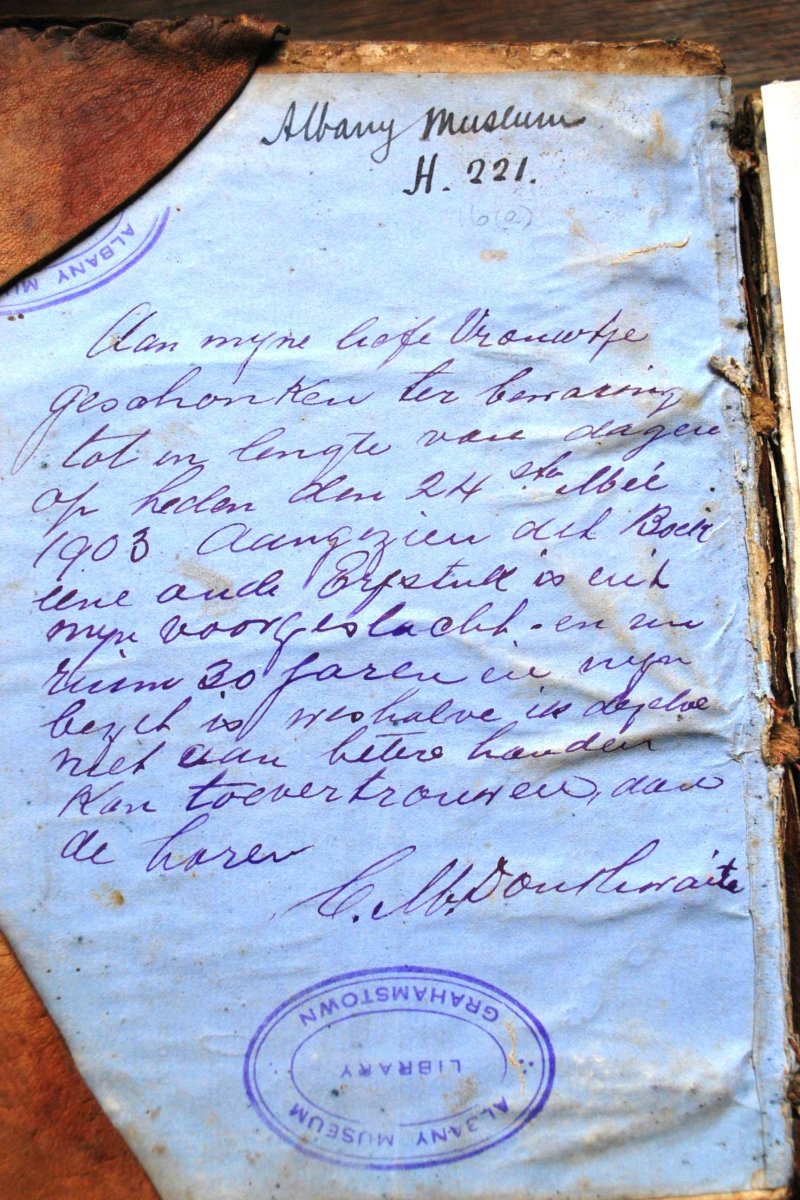 Albany Museum
H. 221.
16(a)
ALBANY MU
Aan myne liefe Vrouwtje
geschonken ter bewaring
tot in lengte van dagen
op heden den 24 ste Mei
1903 Aangezien dit Boek
eene oude Erfstuk is uit
myn voorgeslacht - en nu
ruim 30 Jaren in myn
bezit is, weshalve ik dezelve
niet aan betere handen
kan toevertrouwen, dan
de haren
C. M. Douthwaite
GRAHAMSTOWN
LIBRARY
ALBANY MUSEUM